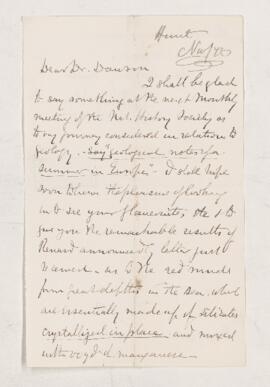 Dear Dr. Dawson
I shall be glad
to say something at the next Monthly
meeting of the Nat. History Society as
to my journey considered in relation to
geology, - say "geological notes of a
summer in Europe". I shall hope
soon to have the pleasure of looking
in to see you & Laurentia, & to
give you the remarkable results of
Renard announced by letter just
received as to the red muds
from great depths in the sea, which
are essentially made up of silicates
crystallized in place and mixed
with oxyd of manganese